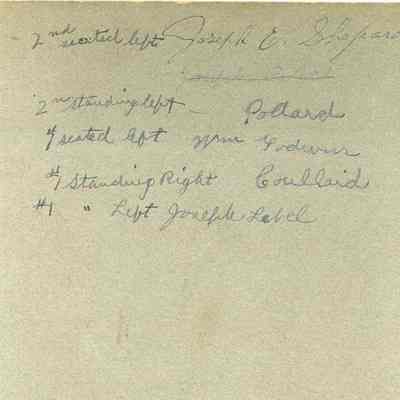 2nd seated left Joseph E. Shepard
2nd standing left - Pollard
#1 seated left Wm Godwin
#1 Standing Right Coullard
#1 " Left Joseph Label